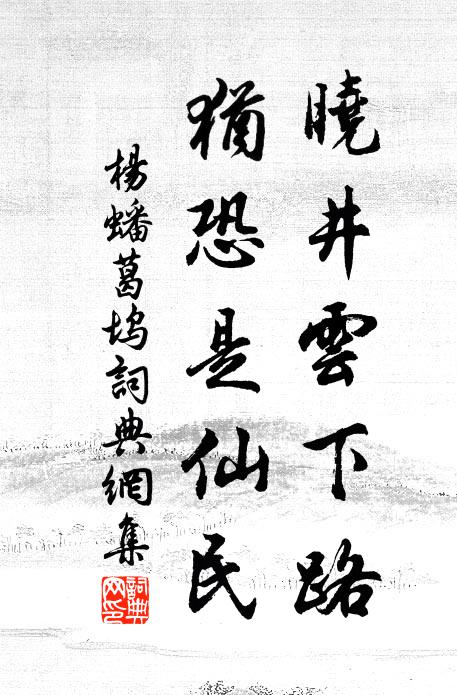 曉井雲下路
猶恐是仙民
楊蟠葛塢詞典網集
詞典網印